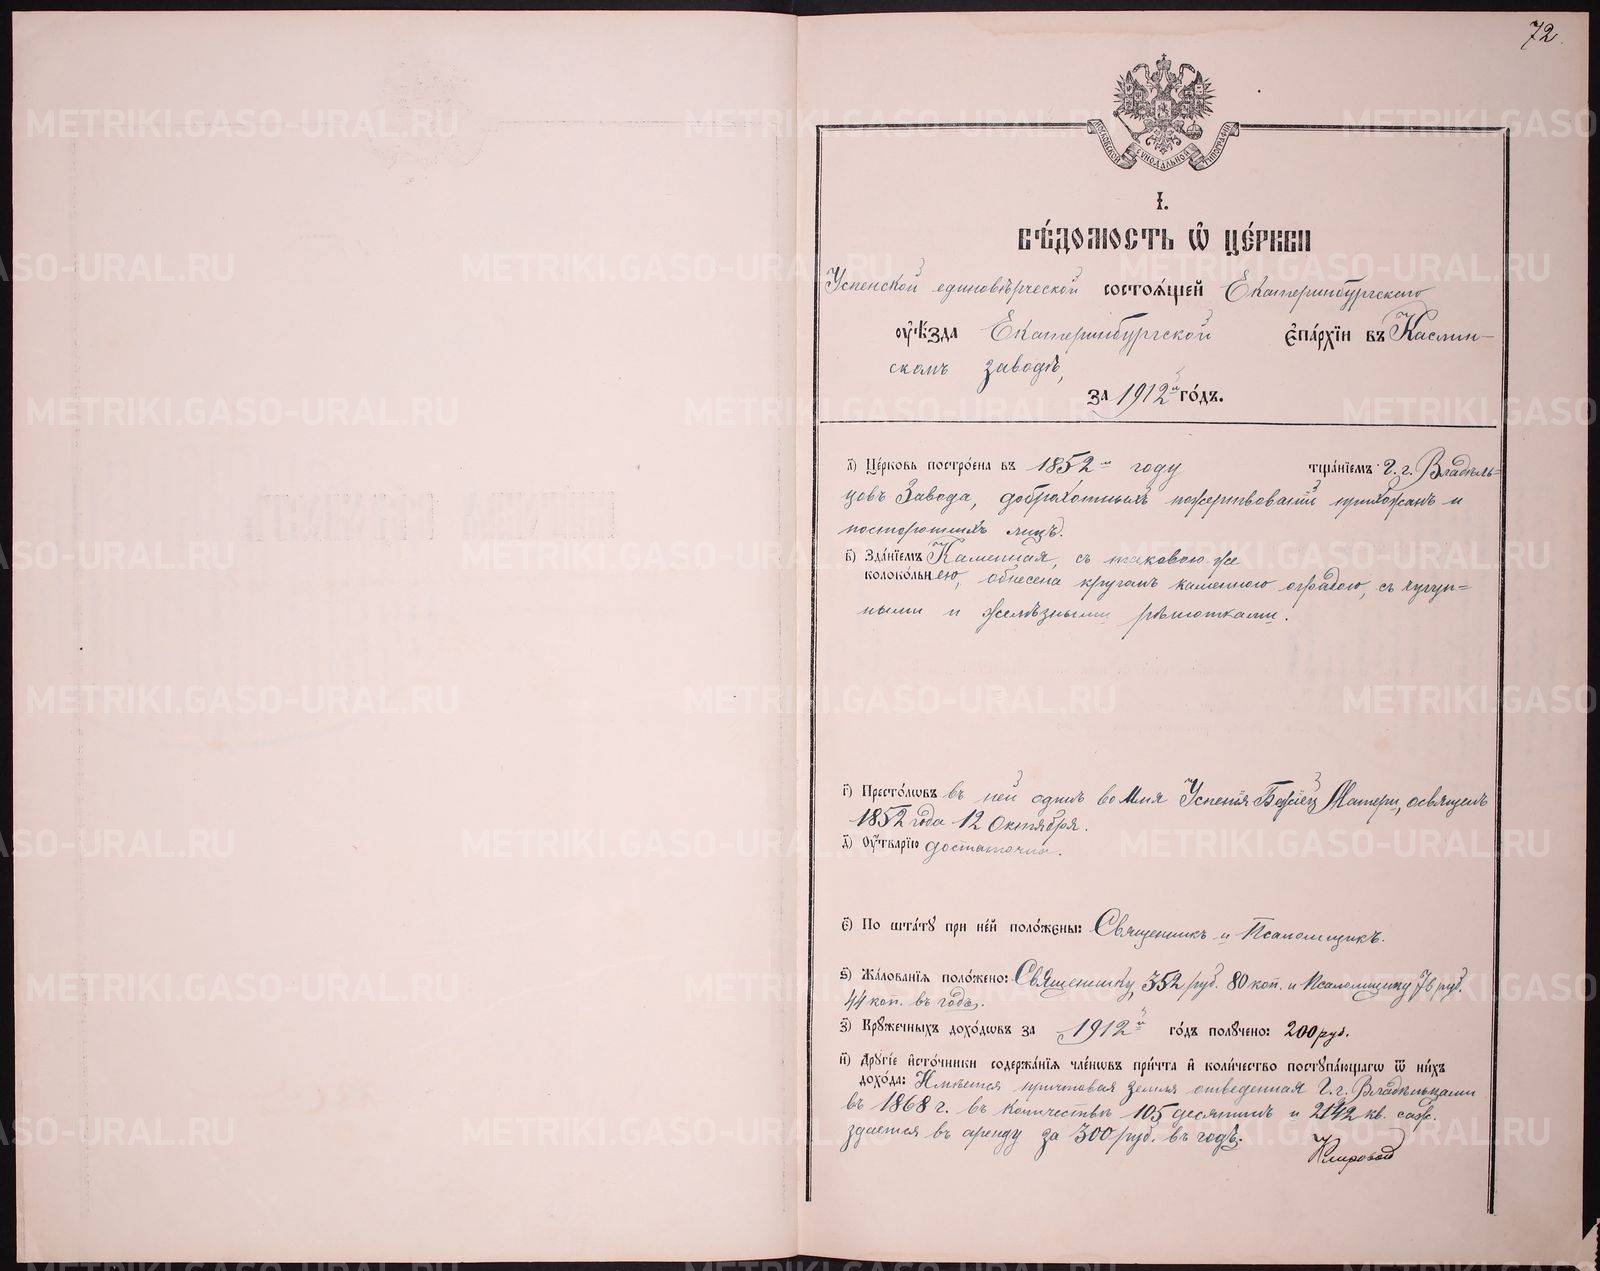 72
МОСКОВСКОЙ СѴНОДАЛЬНОЙ ТИПОГРАФІИ
І.
ВѢ́ДОМОСТЬ Ѽ ЦЕ́РКВИ
Успенской единовѣрческой состоѧ́щей Екатеринбургскаго
оуѣ́зда Екатеринбургской є҆па́рхїи въ Каслин-
скомъ заводѣ,
за 1912й го́дъ.
а҃) Це́рковь постро́ена въ 1852мъ году тща́нїемъ Г. г. Владѣль=
цовъ Завода, доброхотныхъ пожертвованій прихожанъ и
постороннихъ лицъ.
в҃) Зда́нїемъ Каменная, съ таковою же
колоко́льнею, обнесена кругомъ каменною оградою, съ чугун=
ными и желѣзными рѣшотками.
г҃) Престо́лѡвъ въ ней одинъ во Имя Успенія Божіей Матери, освященъ
1852 года 12 Октября.
д҃) Оу҆́тварїю достаточна.
є҃) По шта́тꙋ при не́й поло́жены: Священникъ и Псаломщикъ.
ѕ҃) Жа́лованїѧ поло́жено: Священнику, 352 руб. 80 коп. и Псаломщику 76 руб.
44 коп. въ годъ.
з҃) Крꙋ́жечныхъ дохо́дѡвъ за 1912й го́дъ полꙋ́чено: 200 руб.
и҃) Дрꙋгі́е и҆сто́чники содержа́нїѧ чле́нѡвъ при́чта и҆ коли́чество постꙋпа́ющагѡ ѿ ни́хъ
дохо́да: Имѣется причтовая земля отведенная Г. г. Владѣльцами
въ 1868 г. въ количествѣ 105 десятинъ и 2142 кв. саж.
здается въ аренду за 300 руб. въ годъ.
METRIKI.GASO-URAL.RU